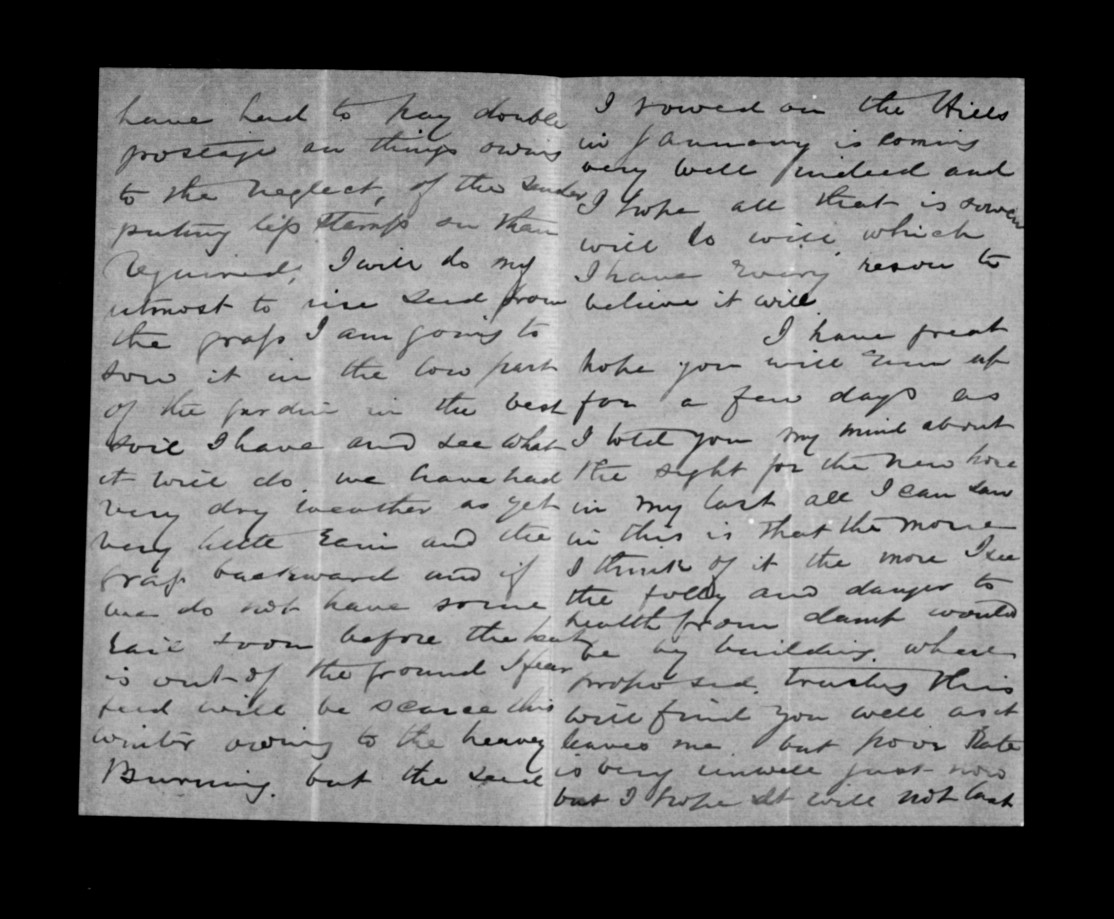 have had to pay double
postage on things owing
to the neglect, of the sender
puting less stamps on than
required, I will do my
utmost to rise seed from
the grass I am going to
sow it in the low part
of the garden in the best
soil I have and see what
it will do. we have had
very dry weather as yet
very little Rain and the
grass backward and if
we do not have some
Rain soon before the heat
is out of the ground I fear
feed will be scarce this
winter owing to the heavey
Burning. but the seed
I sowed on the Hills
in January is coming
very well indeed and
I hope all that is sowen
will do will which
I have Every reson to
believe it will
I have great
hope you will Run up
for a few days as
I told you my mind about
the sight for the new hous
in my last all I can saw
in this is that the more
I think of it the more I see
the folly and danger to
health from damp would
be by building where
proposed. trusting this
will find you well as it
leaves me. but poor Kate
is very unwell just now
but I hope it will not last